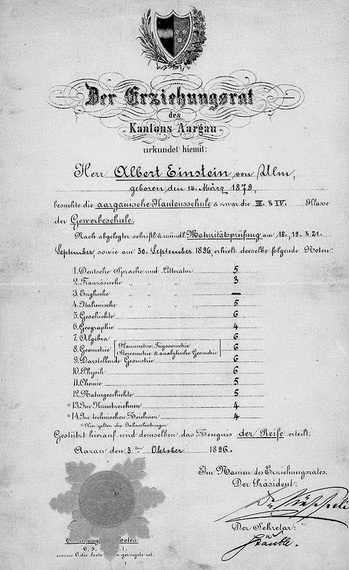 Der Erziehungsrat
des
Kantons Aargau
urkundet hiemit:
Herr Albert Einstein von Ulm,
geboren den 14. März 1879,
besuchte die aargauische Kantonsschule & zwar die III. & IV. Klasse
der Gewerbeschule.
Nach abgelegter schriftl. & mündl. Maturitätsprüfung am 18., 19. & 21.
September, sowie am 30. September 1896, erhielt derselbe folgende Noten:
1. Deutsche Sprache und Litteratur 5
2. Französische " " " 3
3. Englische " " " —
4. Italienische " " " 5
5. Geschichte 6
6. Geographie 4
7. Algebra 6
8. Geometrie (Planimetrie, Trigonometrie 6
Stereometrie & analytische Geometrie)
9. Darstellende Geometrie 6
10. Physik 6
11. Chemie 5
12. Naturgeschichte 5
*13. Im Kunstzeichnen 4
*14. Im technischen Zeichnen 4
* Hier gelten die Jahresleistungen.
Gestützt hierauf wird demselben das Zeugnis der Reife erteilt.
Aarau den 3ten Oktober 1896.
Im Namen des Erziehungsrates,
Der Präsident:
Der Sekretär: